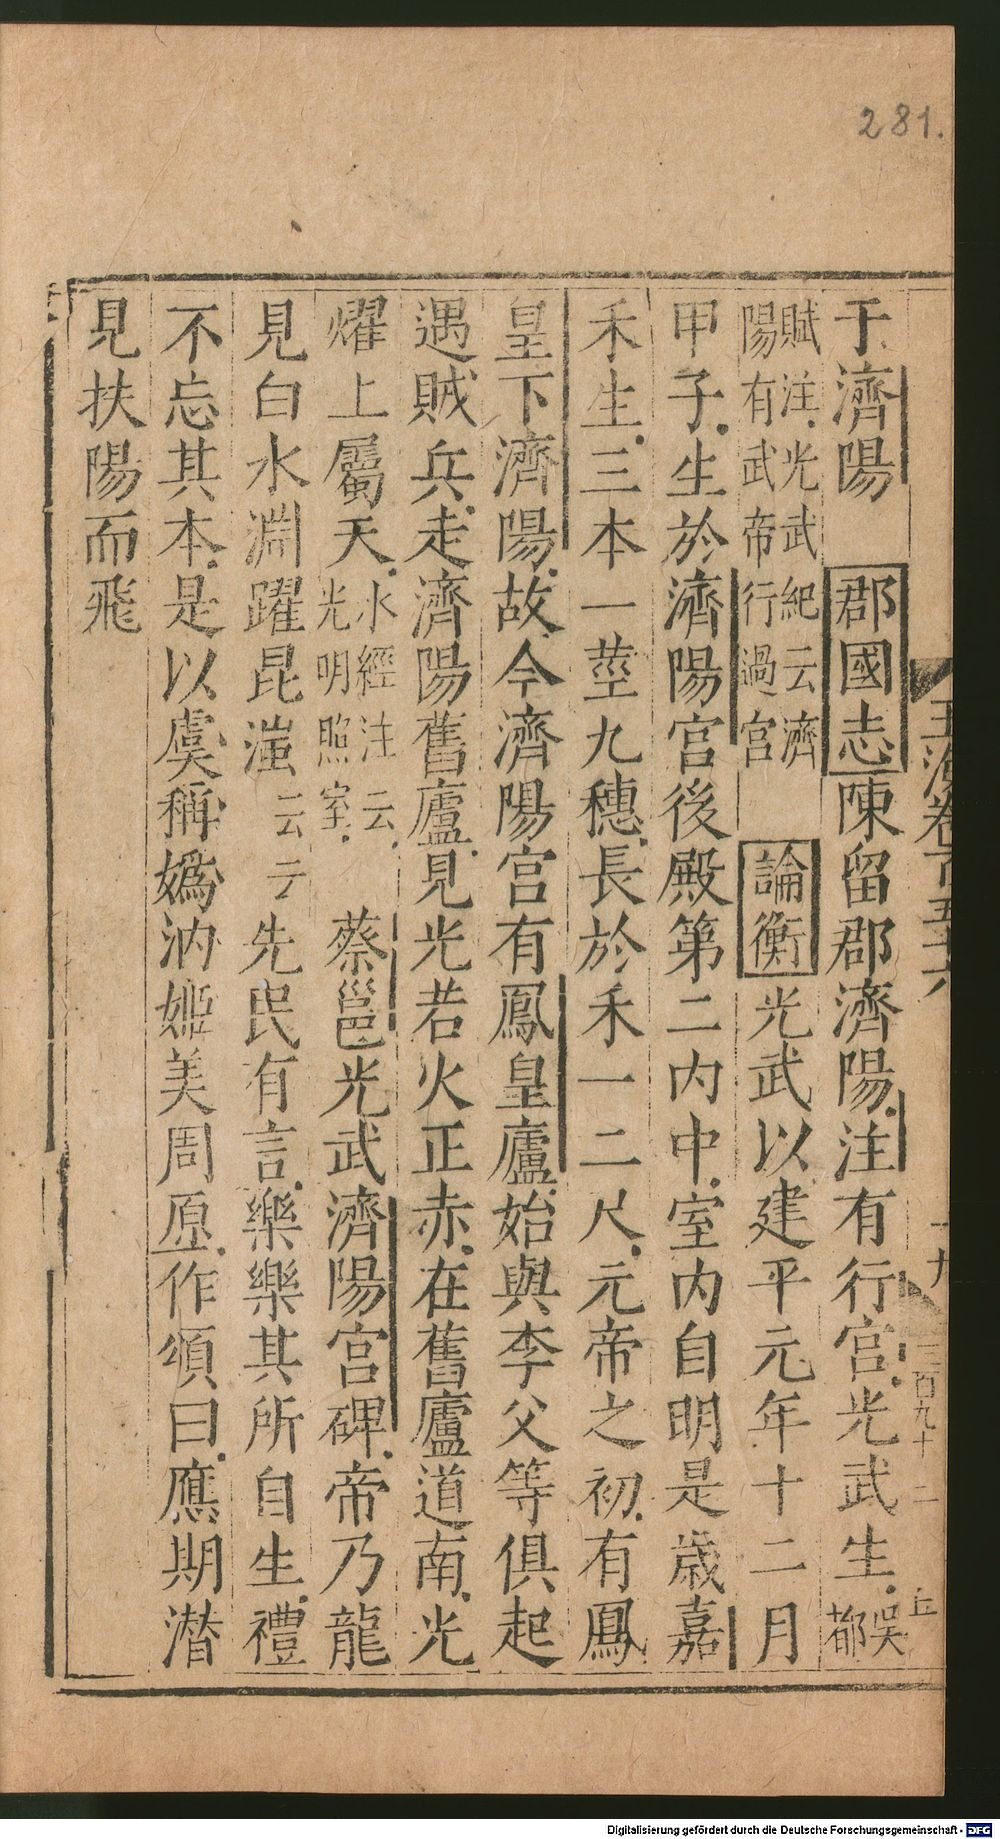 281.
玉海卷百五十八
十九
三百九十二
丘
于濟陽 郡國志陳留郡濟陽注有行宮光武生吳都
賦注光武紀云濟陽有武帝行過宮 論衡光武以建平元年十二月
甲子生於濟陽宮後殿第二內中室內自明是歲嘉
禾生三本一莖九穗長於禾一二尺元帝之初有鳳
皇下濟陽故今濟陽宮有鳳皇廬始與李父等俱起
遇賊兵走濟陽舊廬見光若火正赤在舊廬道南光
燿上屬天水經注云光明照室 蔡邕光武濟陽宮碑帝乃龍
見白水淵躍昆滍云云先民有言樂樂其所自生禮
不忘其本是以虞稱媯汭姬美周原作頌曰應期潛
見扶陽而飛
Digitalisierung gefördert durch die Deutsche Forschungsgemeinschaft - DFG